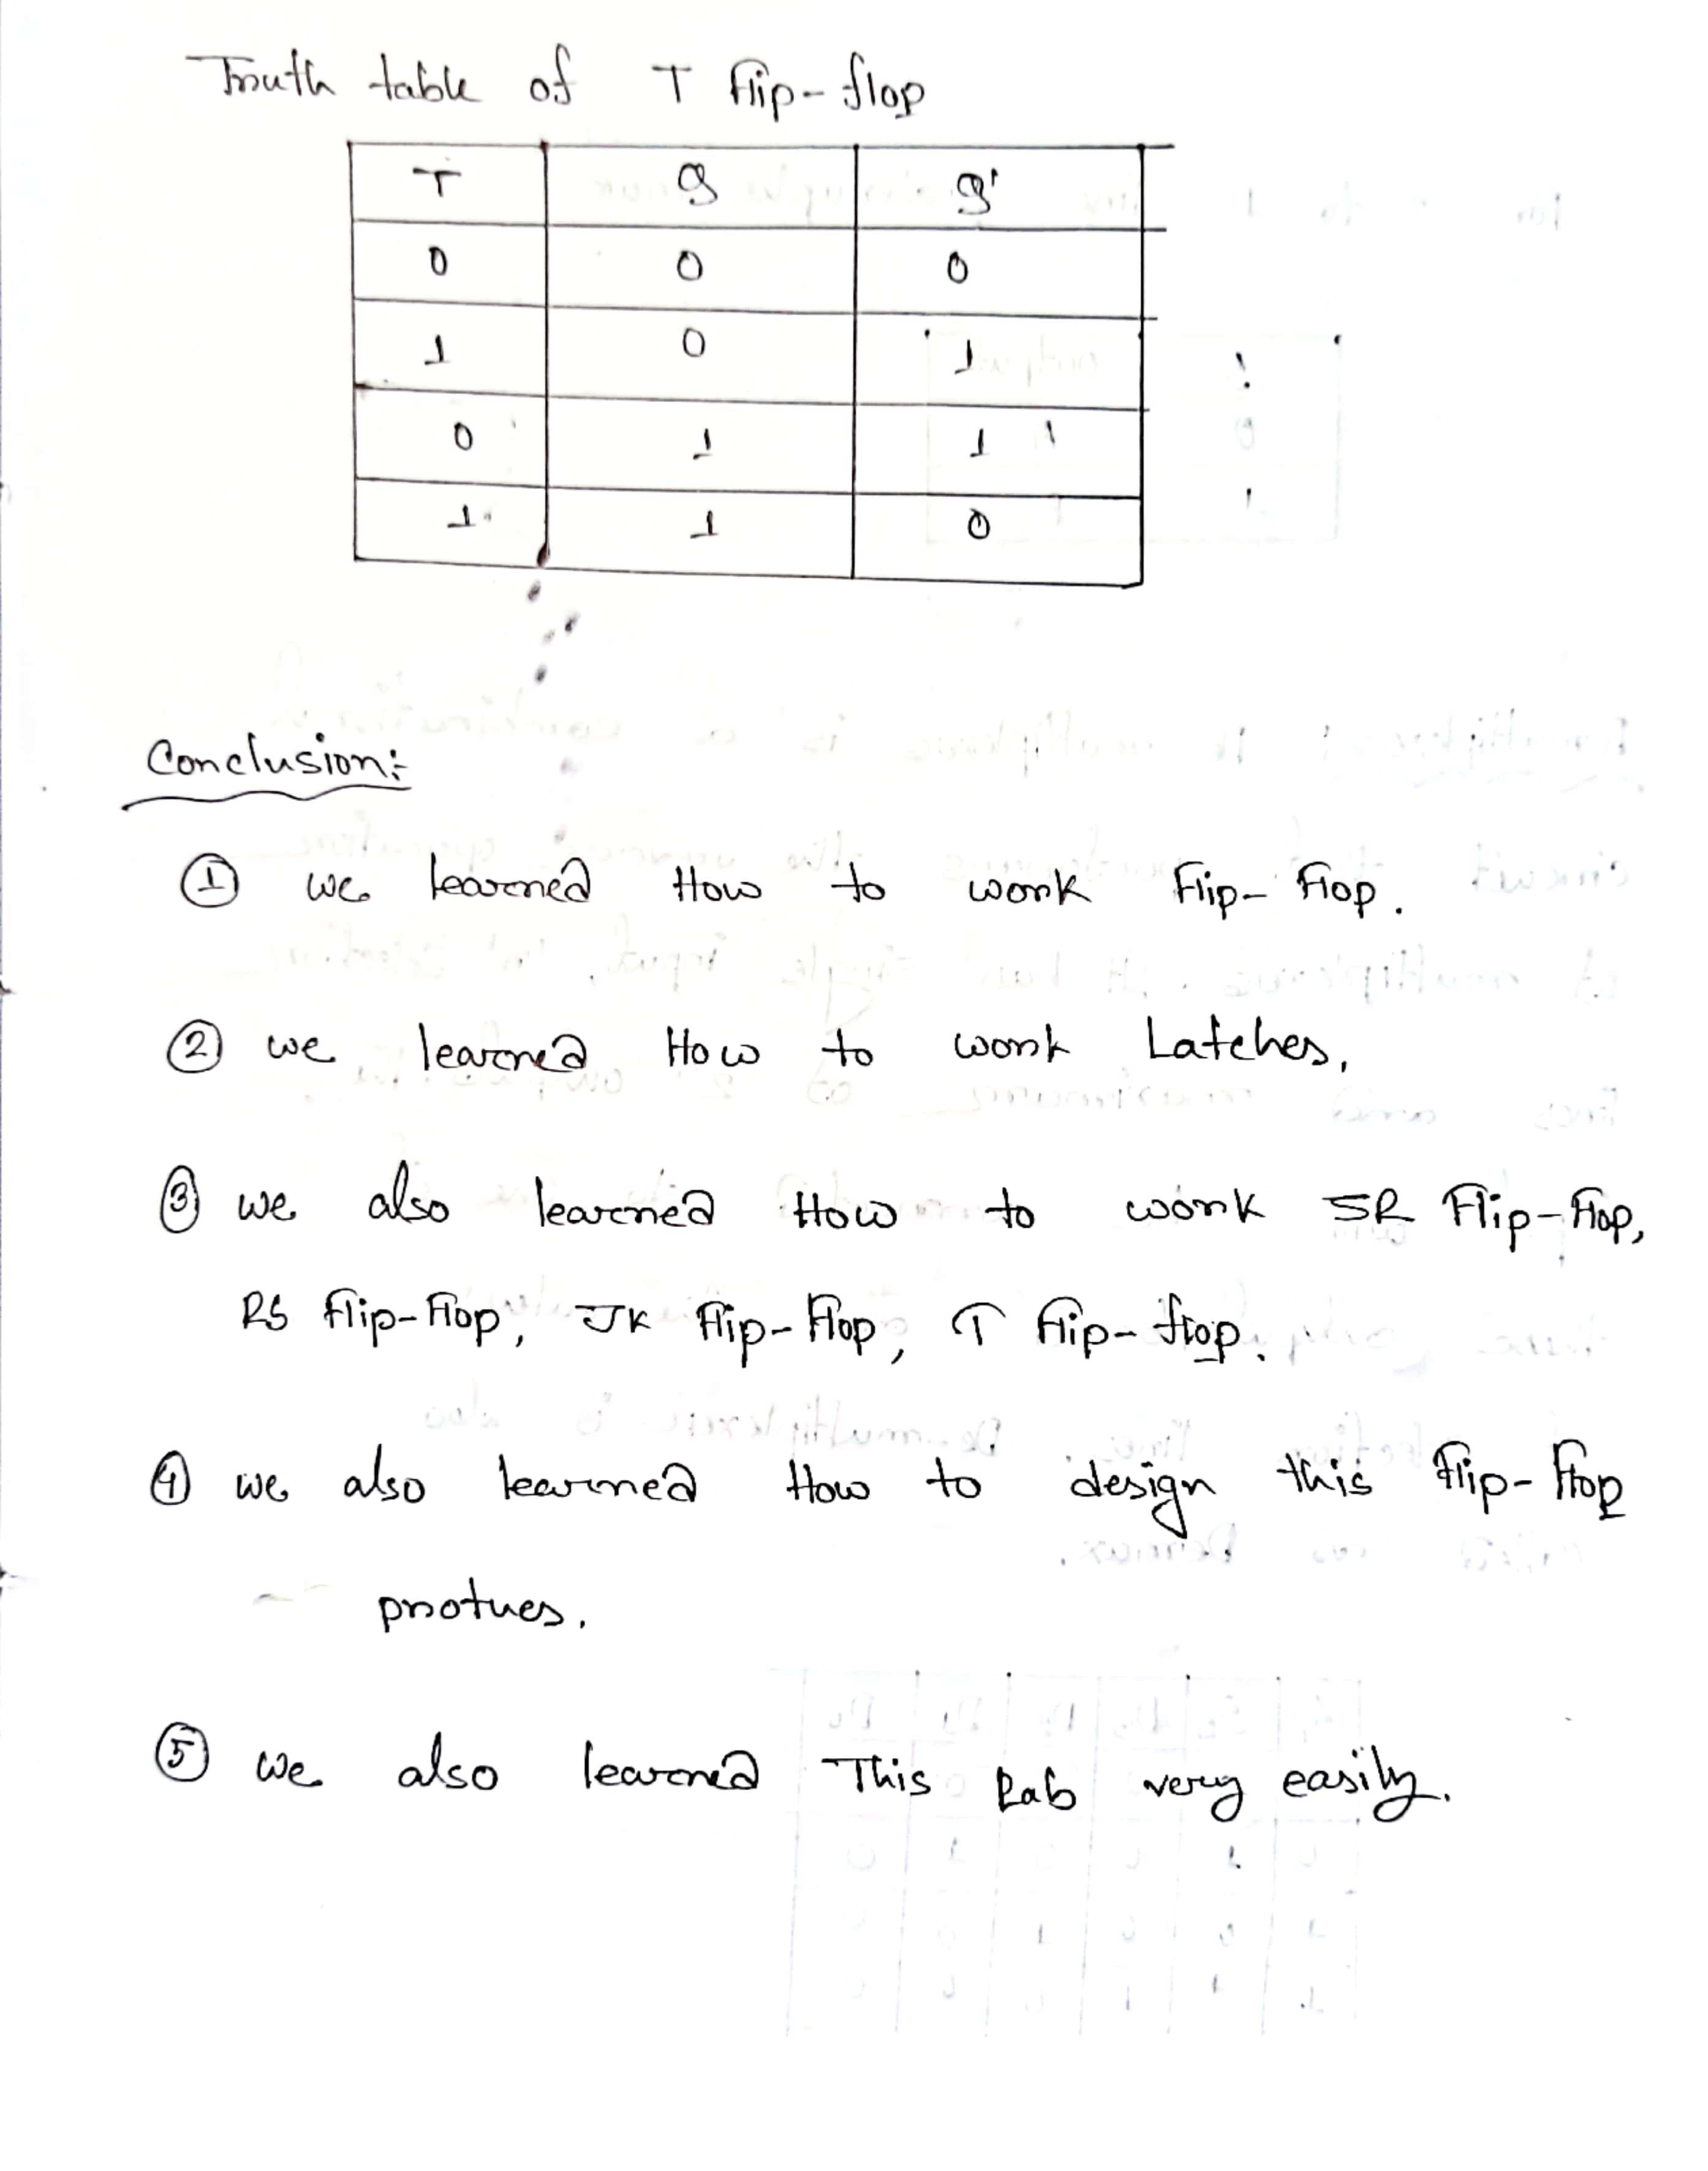 Truth table of T flip-flop
T Q Q'
0 0 0
1 0 1
0 1 1
1 1 0
Conclusion:
① we learned How to work Flip-Flop.
② we learned How to work Latches,
③ we also learned How to work SR Flip-Flop,
RS flip-flop, JK flip-flop, T flip-flop.
④ we also learned How to design this flip-flop
protues.
⑤ we also learned This Lab very easily.